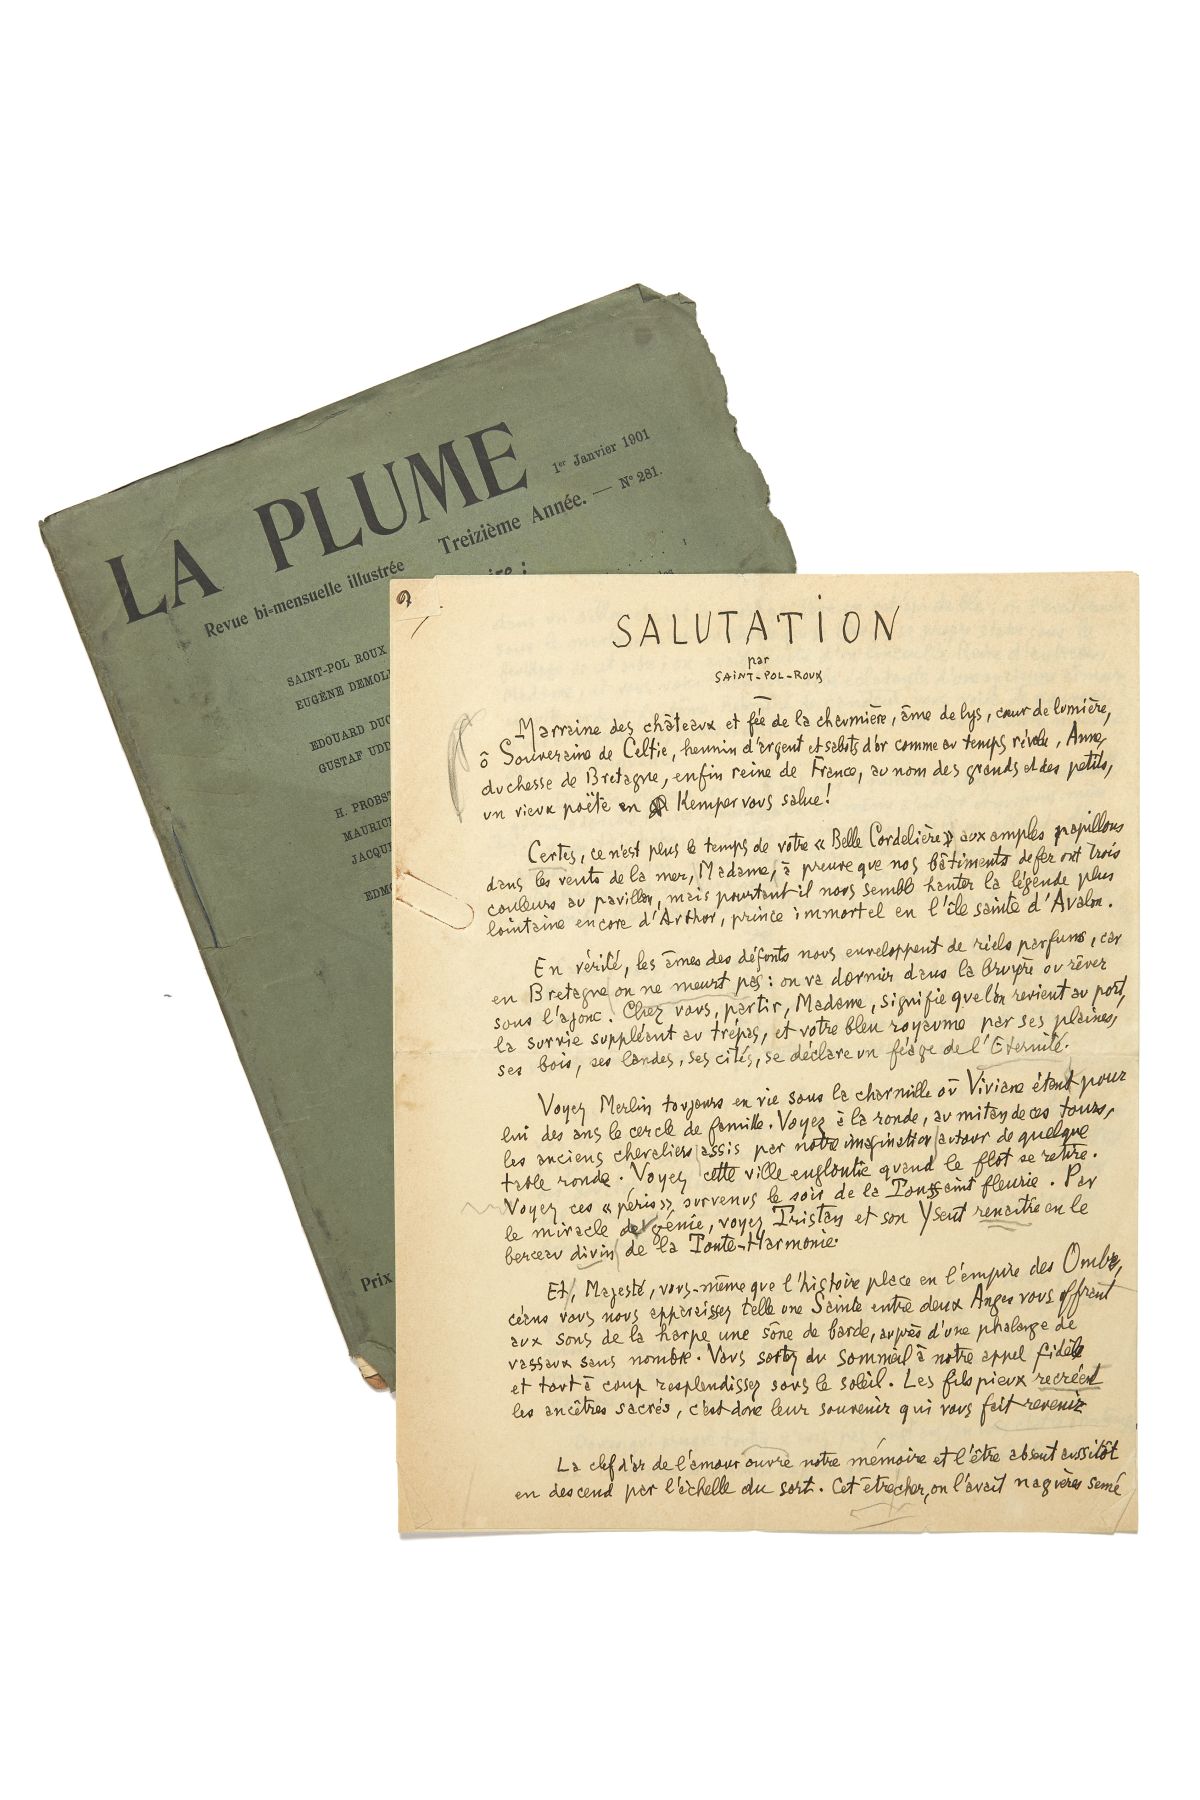 LA PLUME
1er Janvier 1901
Revue bi=mensuelle illustrée
Treizième Année. — N° 281.
SAINT-POL ROUX
EUGÈNE DEMOL
EDOUARD DUC
GUSTAF UDD
H. PROBST
MAURIC
JACQU
EDM
Prix
SALUTATION
par
SAINT-POL-ROUX
Marraine des châteaux et fée de la chaumière, âme de lys, cœur de lumière,
ô Souveraine de Celtie, hennin d'argent et sabots d'or comme au temps révolu, Anne,
duchesse de Bretagne, enfin reine de France, au nom des grands et des petits,
un vieux poëte en Kemper vous salue!
Certes, ce n'est plus le temps de votre « Belle Cordelière » aux amples papillons
dans les vents de la mer, Madame, à preuve que nos bâtiments de fer ont trois
couleurs au pavillon, mais pourtant il nous semble hanter la légende plus
lointaine encore d'Arthor, prince immortel en l'île sainte d'Avalon.
En vérité, les âmes des défunts nous enveloppent de réels parfums, car
en Bretagne on ne meurt pas : on va dormir dans la bruyère ou rêver
sous l'ajonc. Chez vous, partir, Madame, signifie que l'on revient au port,
la survie suppléant au trépas, et votre bleu royaume par ses plaines,
ses bois, ses landes, ses cités, se déclare un féage de l'Eternité.
Voyez Merlin toujours en vie sous la charmille où Viviane étend pour
lui des ans le cercle de famille. Voyez à la ronde, au mitan de ces tours,
les anciens chevaliers assis par notre imagination autour de quelque
table ronde. Voyez cette ville engloutie quand le flot se retire.
Voyez ces « péris » survenus le soir de la Toussaint fleurie. Par
le miracle de génie, voyez Tristan et son Yseut renaître en le
berceau divin de la Toute-Harmonie.
Et, Majesté, vous-même que l'histoire place en l'empire des Ombres,
céans vous nous apparaissez telle une Sainte entre deux Anges vous offrant
aux sons de la harpe une sône de barde, auprès d'une phalange de
vassaux sans nombre. Vous sortez du sommeil à notre appel fidèle
et tout à coup resplendissez sous le soleil. Les fils pieux recréent
les ancêtres sacrés, c'est donc leur souvenir qui vous fait revenir
La clef d'or de l'amour ouvre notre mémoire et l'être absent aussitôt
en descend par l'échelle du sort. Cet être cher, on l'avait naguères semé